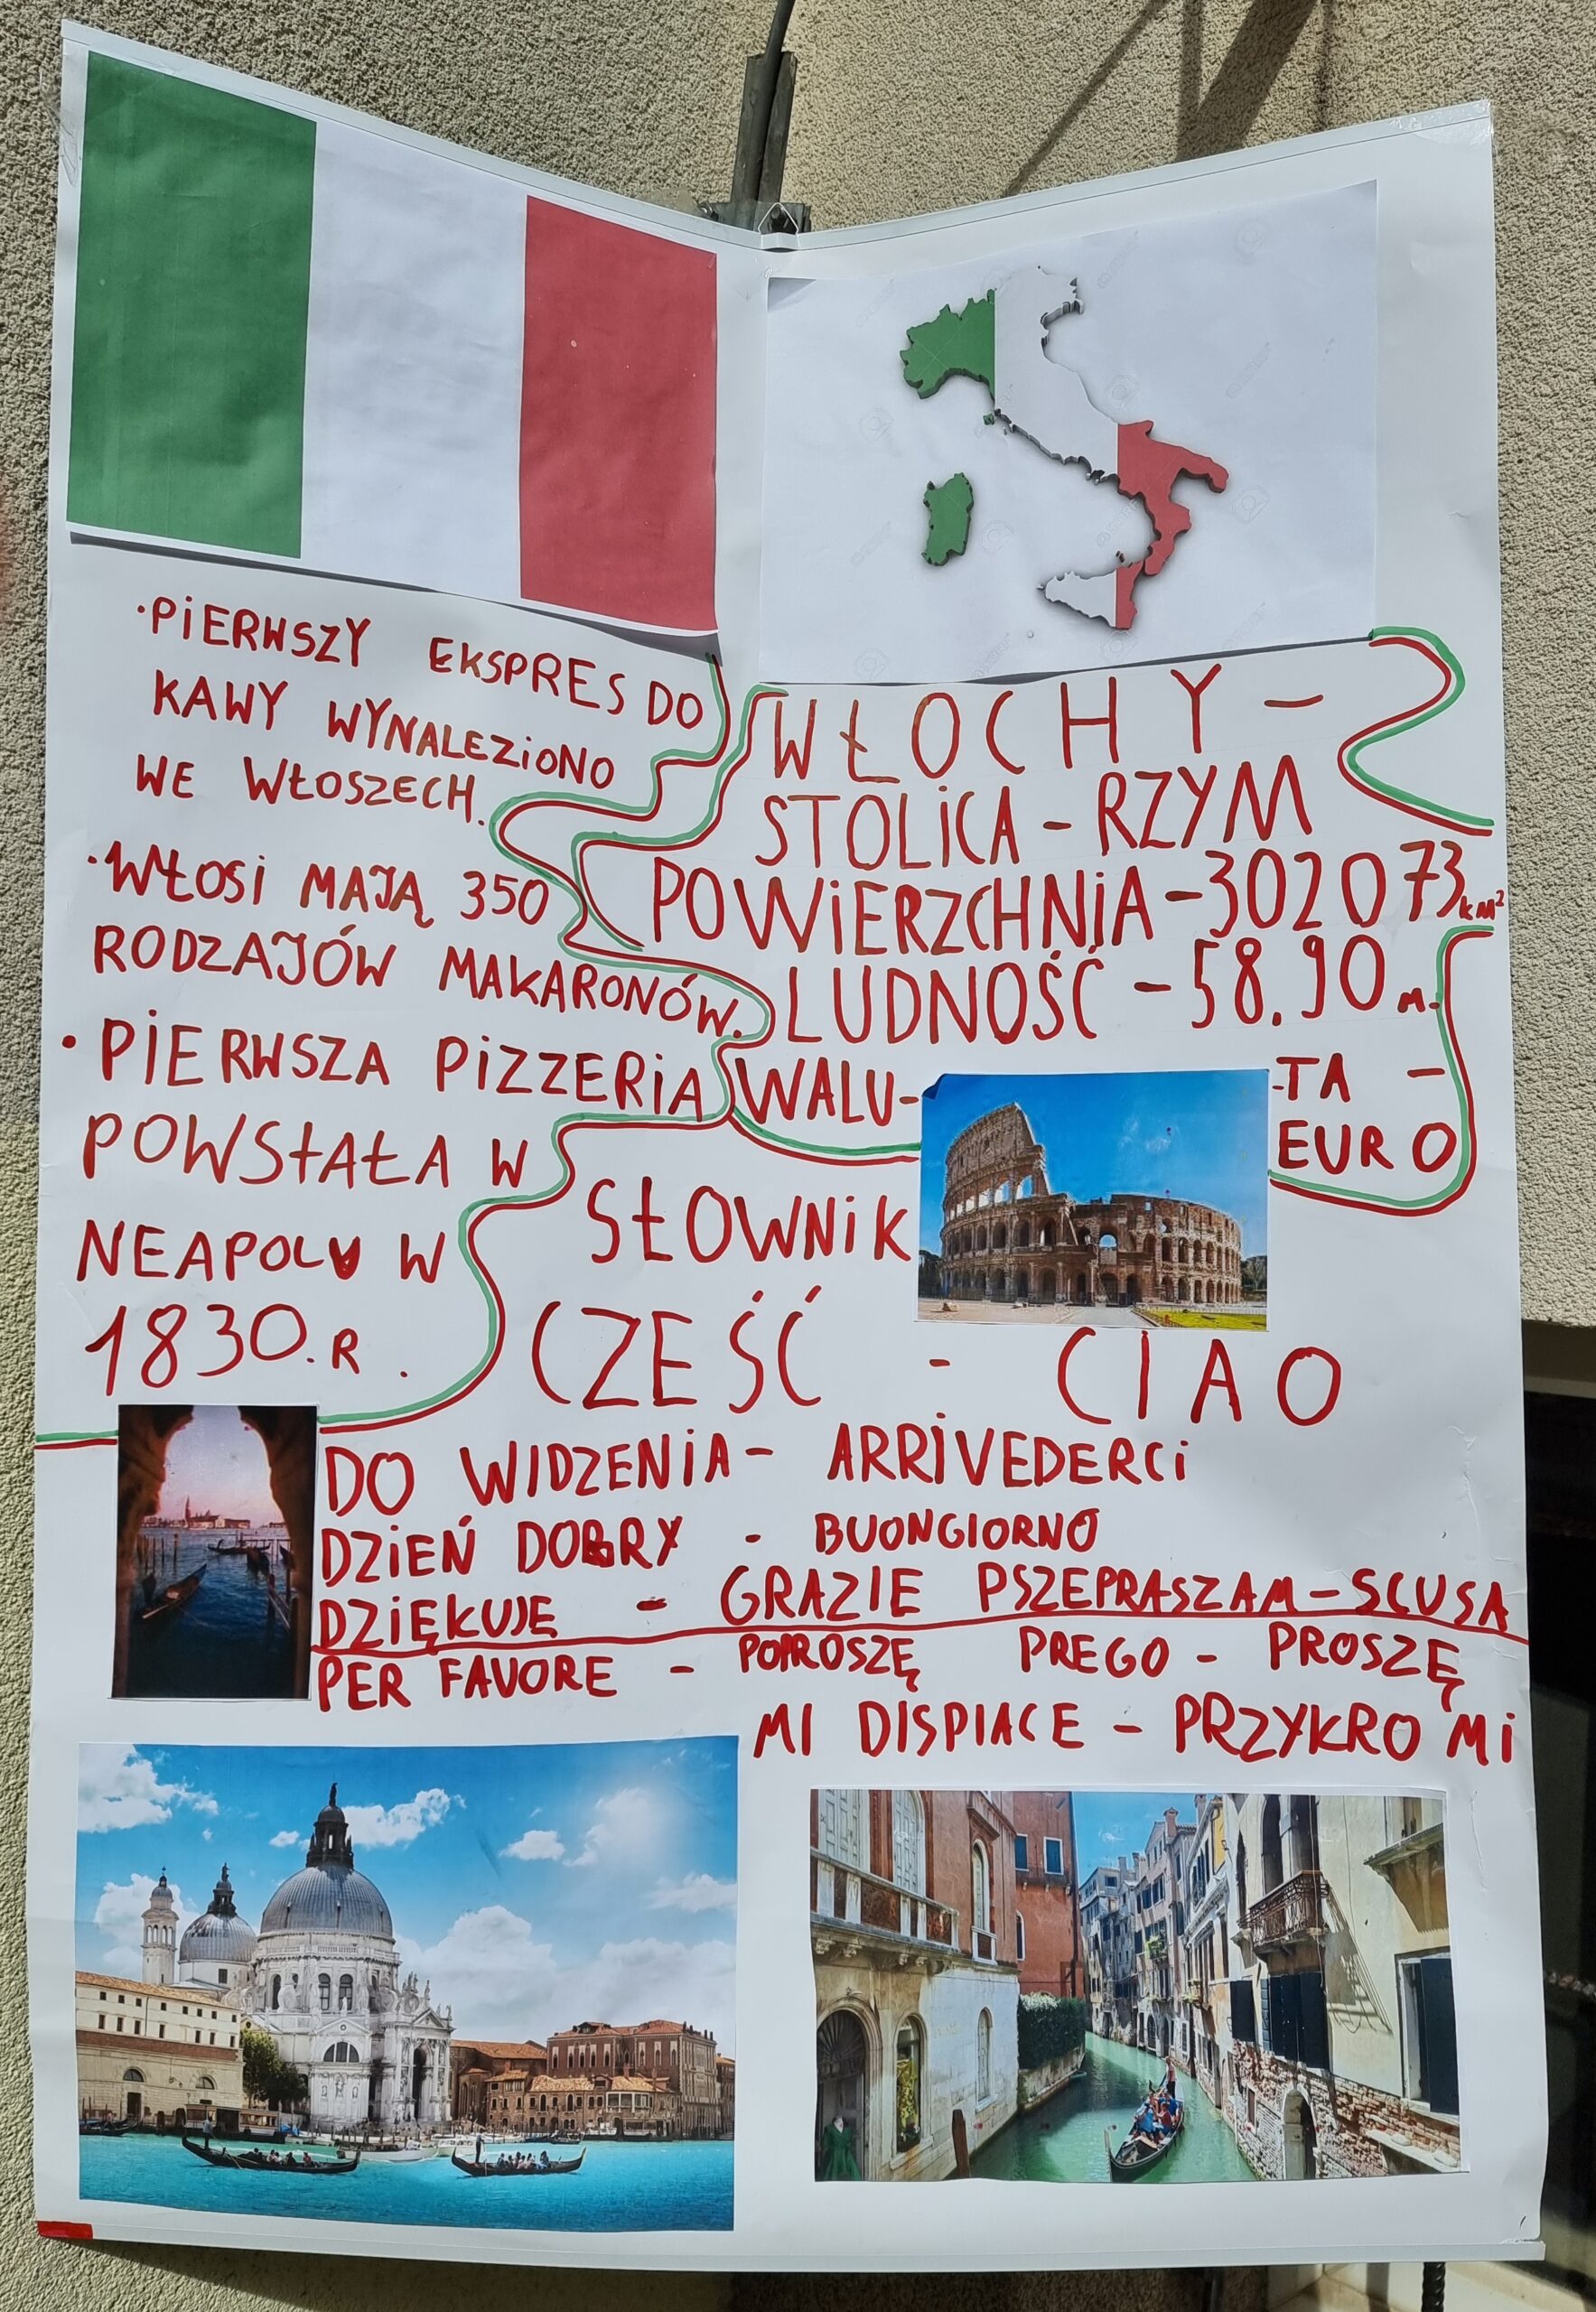 ·PIERWSZY EKSPRES DO
KAWY WYNALEZIONO
WE WŁOSZECH.
·WŁOSI MAJĄ 350
RODZAJÓW MAKARONÓW.
·PIERWSZA PIZZERIA
POWSTAŁA W
NEAPOLU W
1830.R.
WŁOCHY-
STOLICA-RZYM
POWIERZCHNIA-302073 KM²
LUDNOŚĆ-58.90 M.
WALU- -TA -
EURO
SŁOWNIK
CZEŚĆ - CIAO
DO WIDZENIA- ARRIVEDERCI
DZIEŃ DOBRY - BUONGIORNO
DZIĘKUJĘ - GRAZIE PSZEPRASZAM-SCUSA
PER FAVORE - POPROSZĘ PREGO - PROSZĘ
MI DISPIACE - PRZYKRO MI